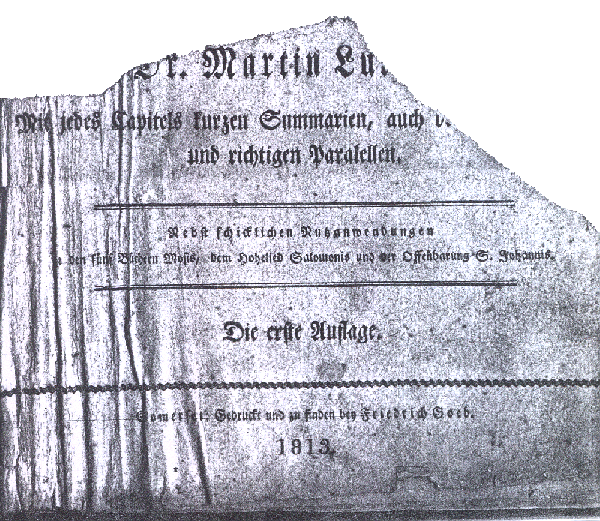 Dr. Martin Lu
Mit jedes Capitels kurzen Summarien, auch
und richtigen Paralellen.
Nebst schicklichen Nutzanwendungen
den fünf Büchern Mosis, dem Hohelied Salomonis und der Offenbarung S. Johannis.
Die erste Auflage.
Somerset: Gedruckt und zu finden bey Friedrich Goeb.
1813.